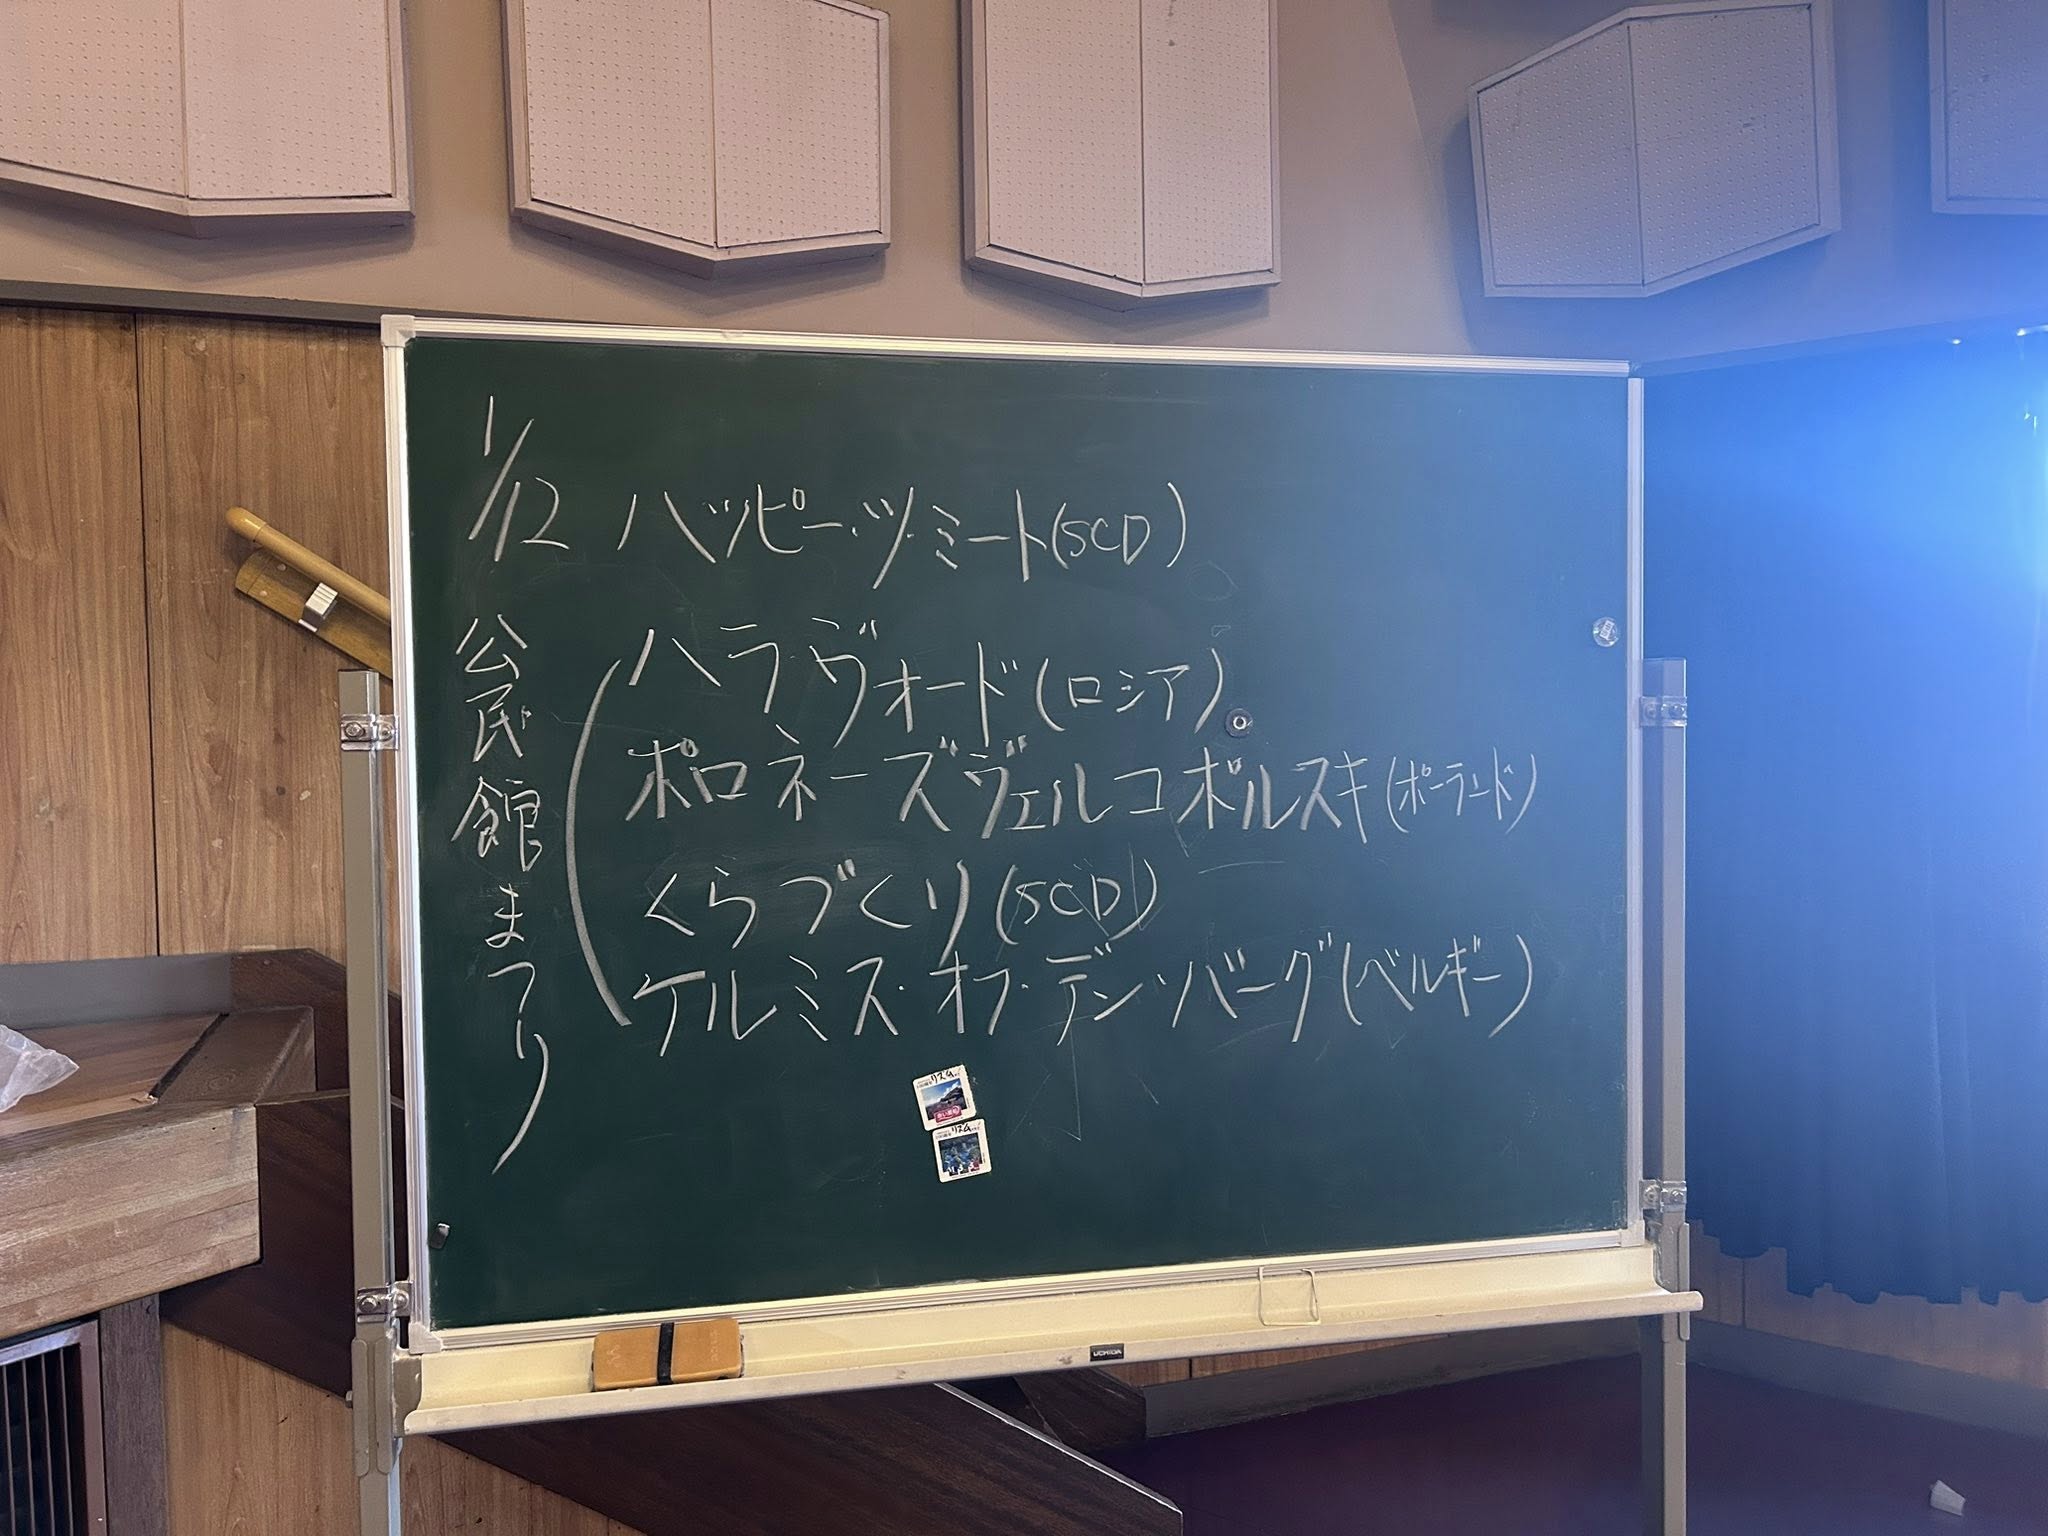 1/12 ハッピー・ツ・ミート(SCD)
公民館まつり
ハラ・ヴォード(ロシア)
ポロネーズヴェルコポルスキ(ポーランド)
くらづくり(SCD)
ケルミス・オブ・デン・ソバーグ(ベルギー)
リズム
リズム
UCHIDA